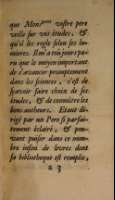 que Mons.^eur vostre pere
veille sur vos études, &
qu'il les regle selon ses lu-
mieres. Il m'a toûjours paru
que le moyen important
de s'avancer promptement
dans les sciences, c'est de
sçavoir faire choix de ses
études, & de connoître les
bons autheurs. Etant di-
rigé par un Pere si parfai-
tement éclairé, & pou-
vant puiser dans ce nom-
bre infini de livres dont
sa bibliotheque est remplie,
a 3